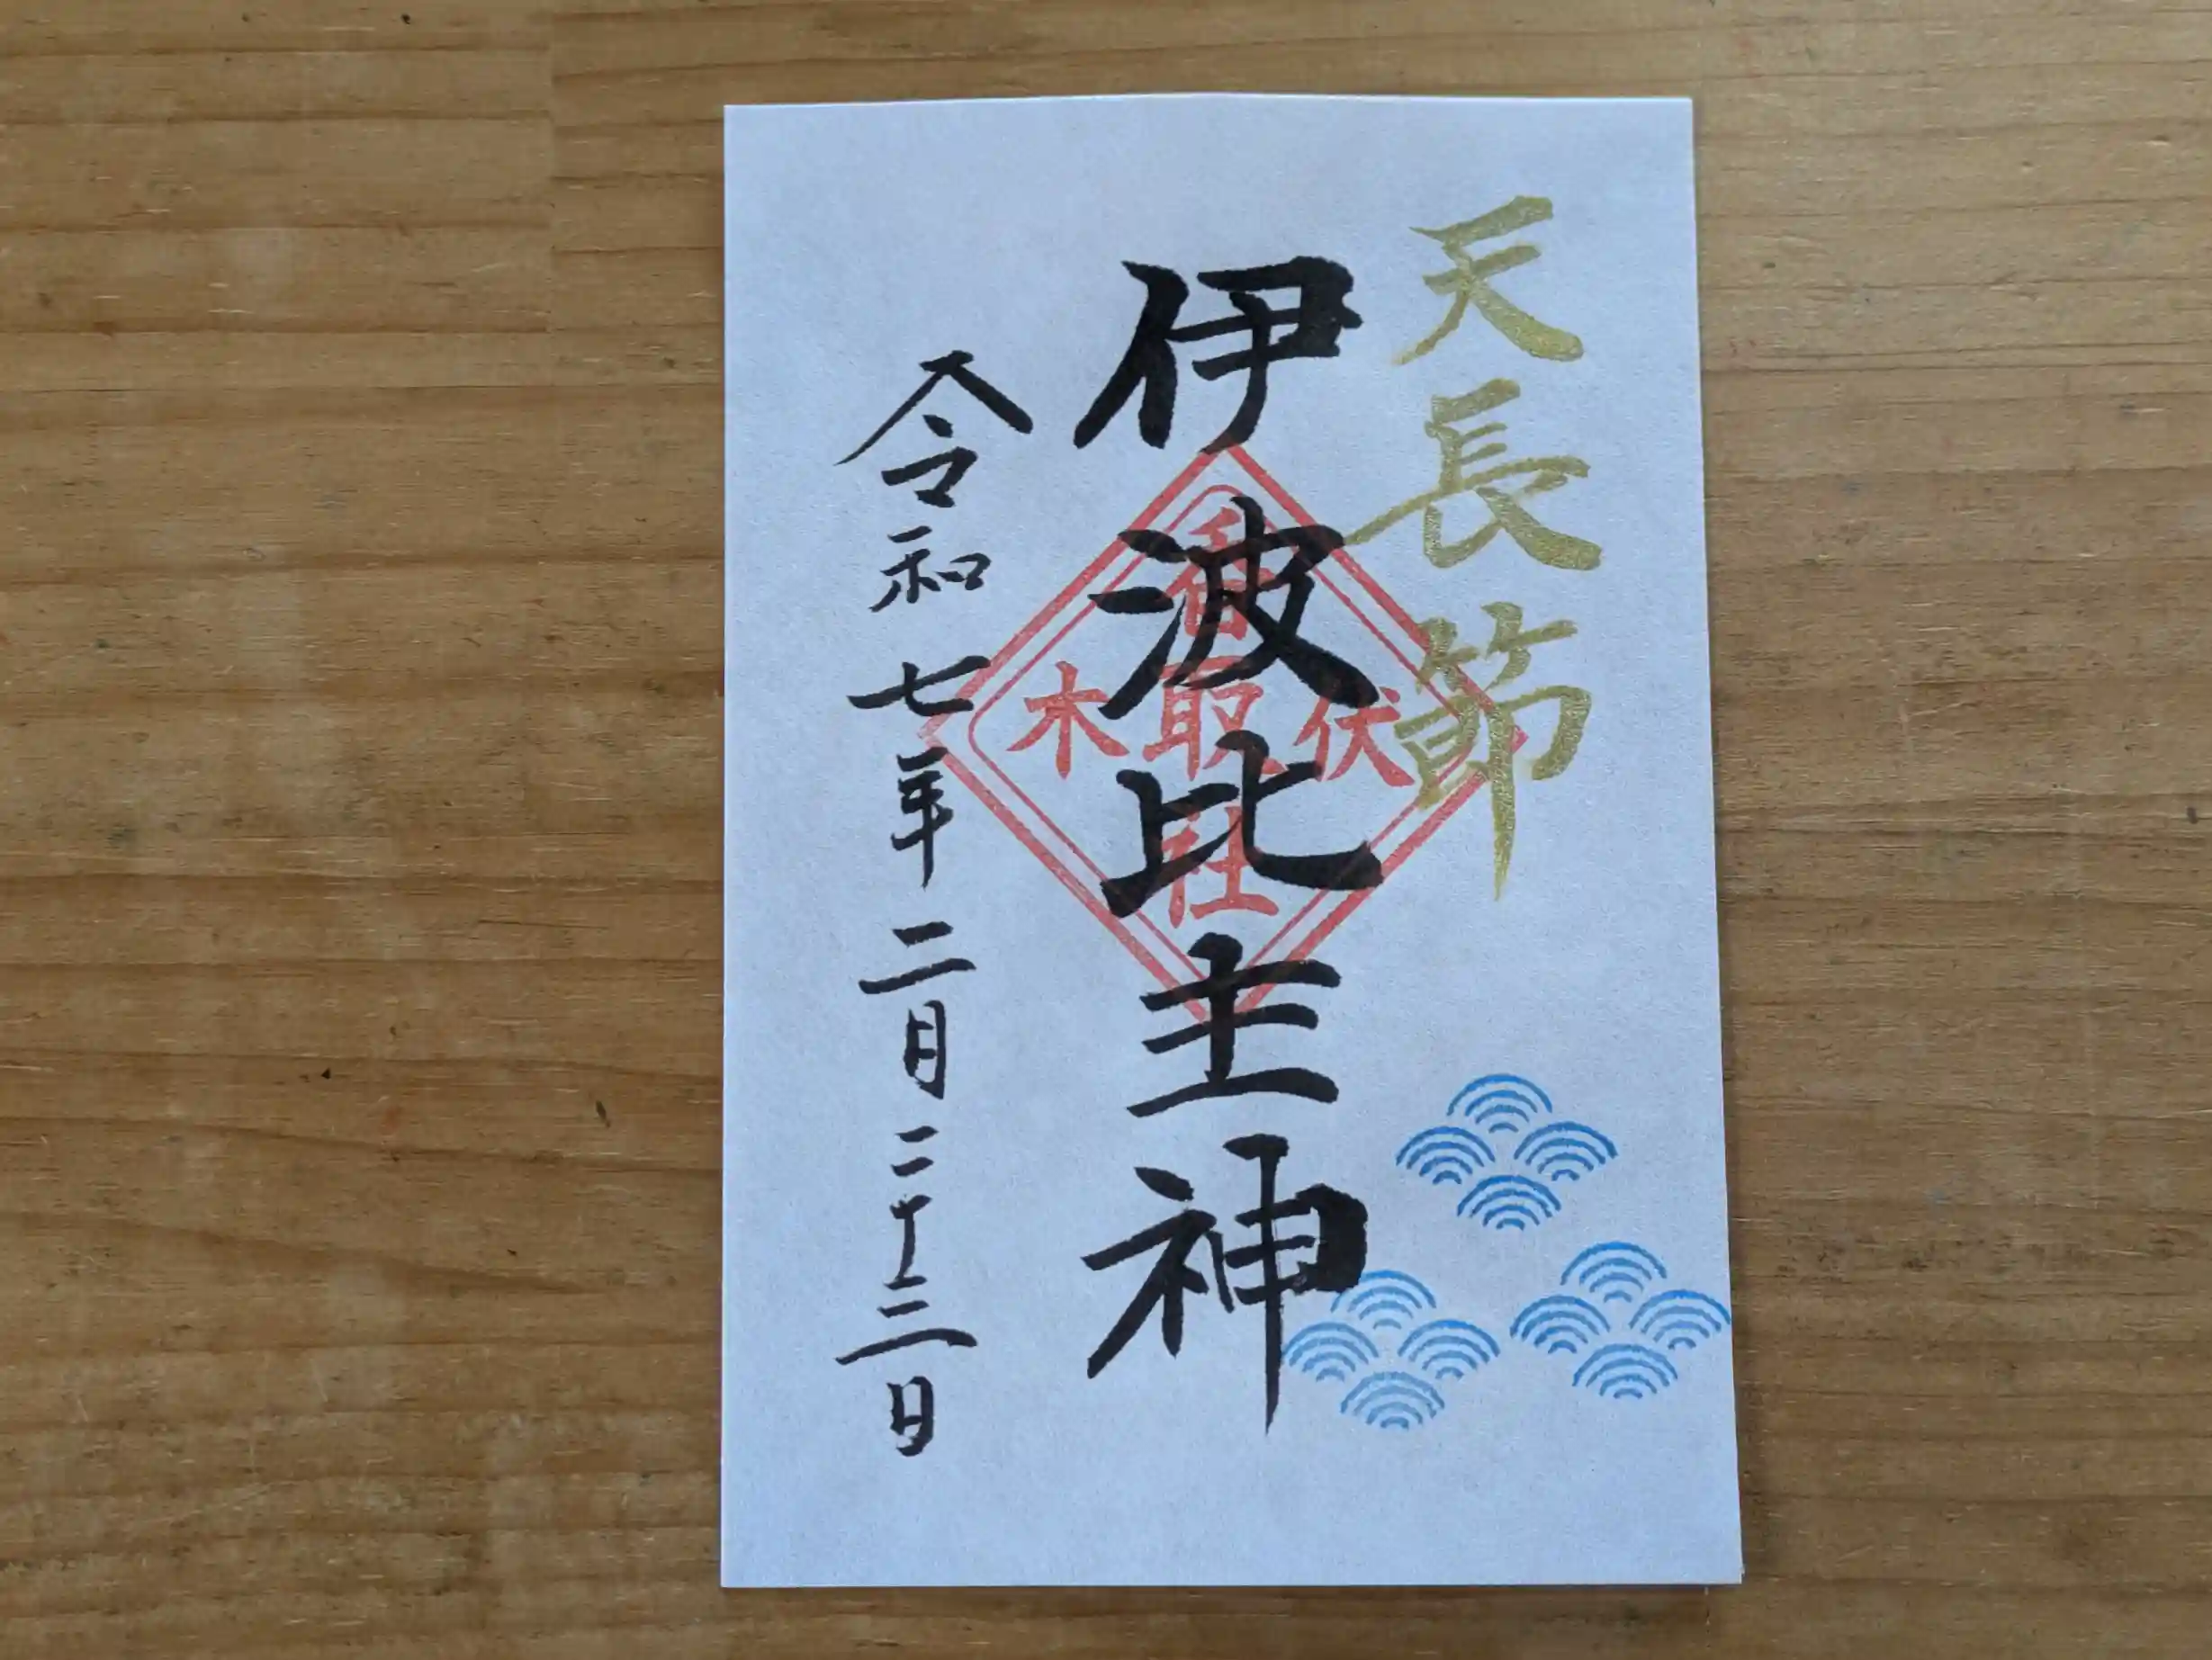 天長節
伊波比主神
令和七年二月二十三日
伏木
香取社